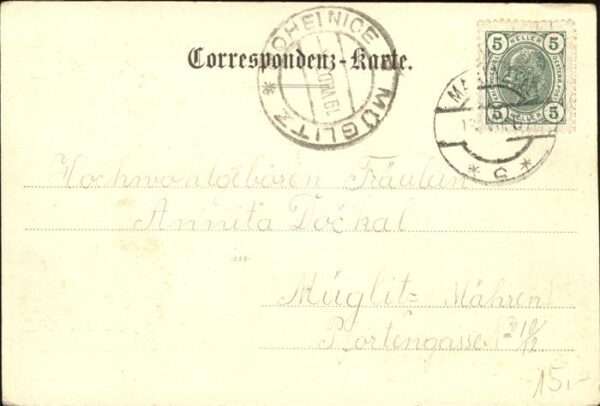 Correspondenz-Karte.
MOHELNICE
MÜGLITZ
5 HELLER 5
5 HELLER 5
Hochwohlgeboren Fräulein
Annita Dočkal
in
Müglitz Mähren
15.-